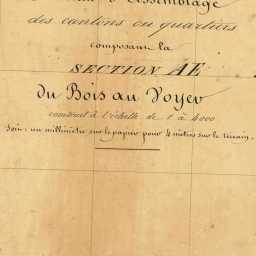 d'assemblage
des cantons ou quartiers
composant la
SECTION AE
du Bois au Voyer
construit à l'échelle de 1 à 4000
Soit: un millimètre sur le papier pour 4 mètres sur le terrain.